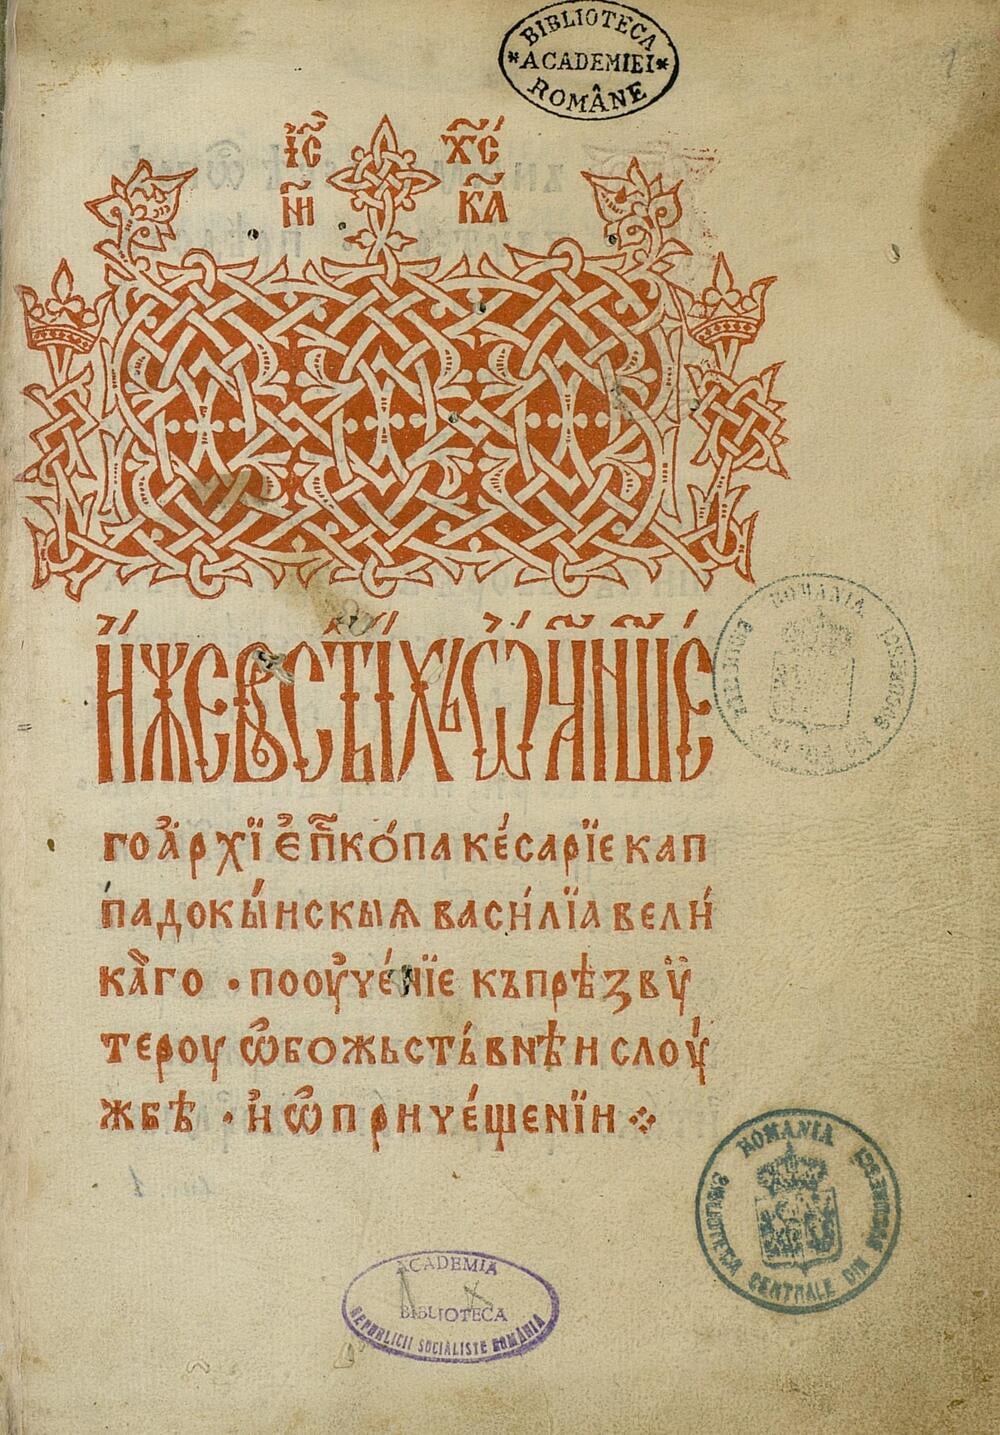 BIBLIOTECA
ACADEMIEI
ROMÂNE
1
і҆с҃ х҃с
ни҃ ка҃
И҆́же въ ст҃ы́хъ ѿц҃а на́ше
го а҆рхїе҆п҃ко́па ке́сарїе кап
падокы́нскыѧ васи́лїа вели́
ка̀го · пооуче́нїе къ прѣзвѵ́
тероу ѡ҆ божьстъвнѣи слоу́
жбѣ · и҆ ѡ҆ причеще́нїи ⁘
ROMANIA
BIBLIOTECA CENTRALE DIN BUCURESCI
ACADEMIA
BIBLIOTECA
REPUBLICII SOCIALISTE ROMÂNIA